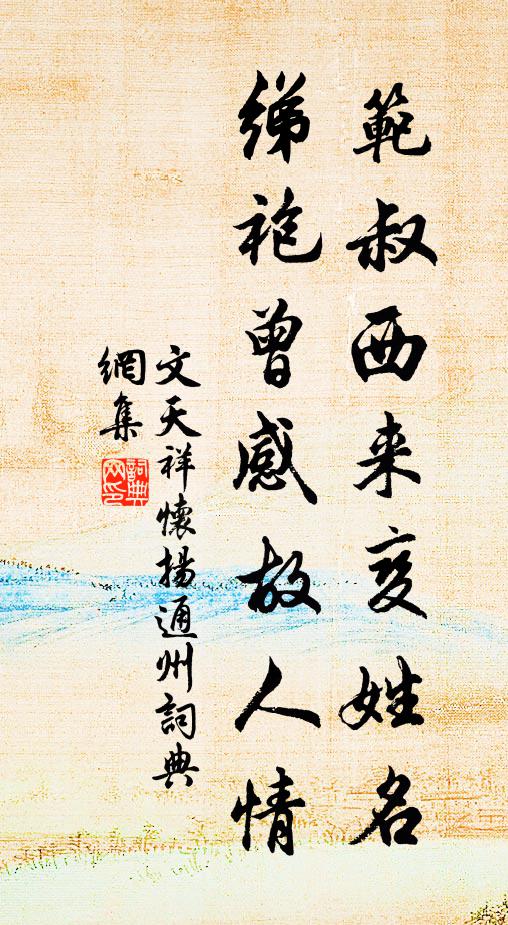 範叔西来变姓名
绨袍曾感故人情
文天祥懷揚通州詞典
網集
詞典網印